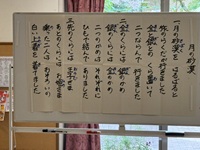 月の砂漠
一、月の砂漠を はるばると
旅のらくだが 行きました
金と銀との くら置いて
二つならんで 行きました
二、金のくらには 銀のかめ
銀のくらには 金のかめ
二つのかめは それぞれに
ひもで結んで ありました
三、
さきのくらには 王子さま
あとのくらには お姫さま
乗った二人は おそろいの
白い上着を 着てました